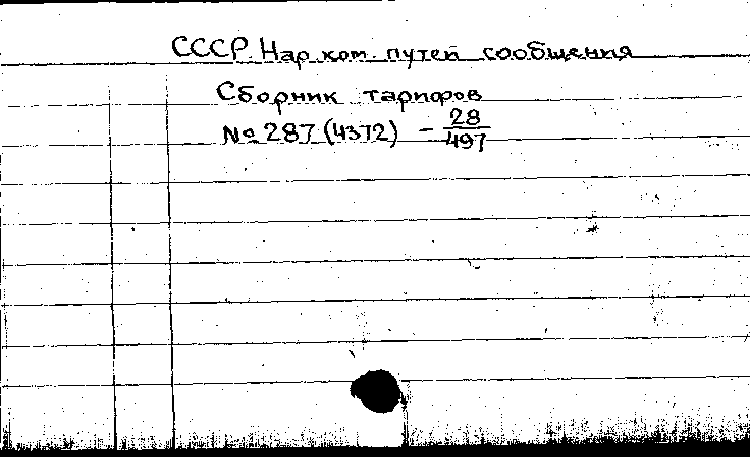 СССР. Нар. ком. путей сообщения
Сборник тарифов
№ 287 (4372) – 28/497